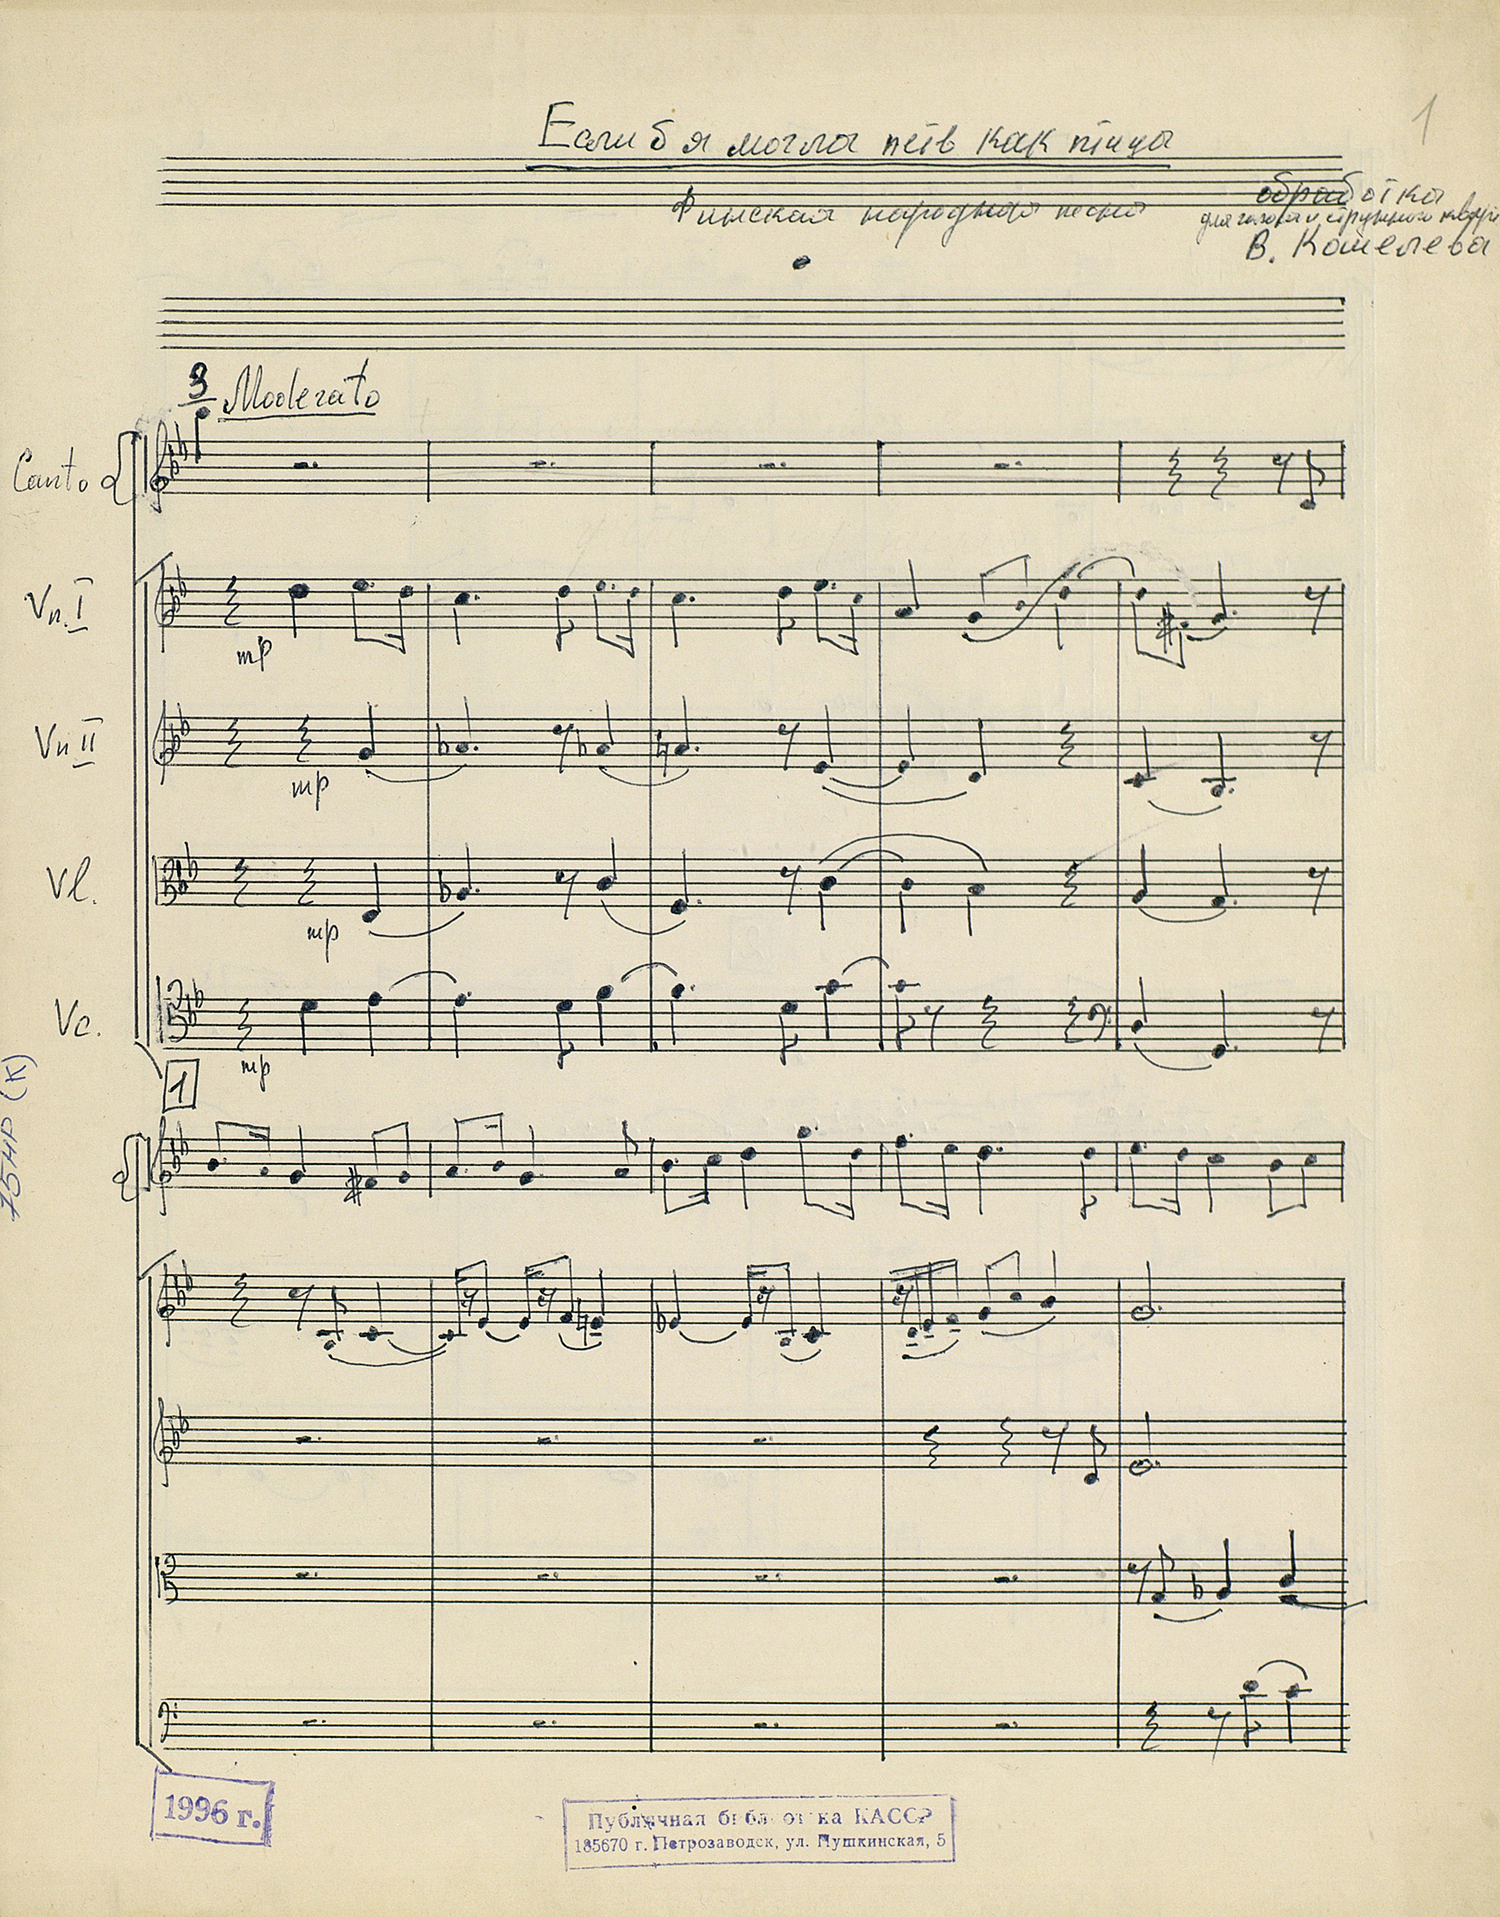 1
Если б я могла петь как птица
Финская народная песня
обработка
для голоса и струнного квар
В. Кошелева
3
Moderato
Canto
Vn. I
mp
Vn II
mp
Vl.
mp
Vc.
mp
1
75НР (К)
1996 г.
Публичная библиотека КАССР
185670 г. Петрозаводск, ул. Пушкинская, 5